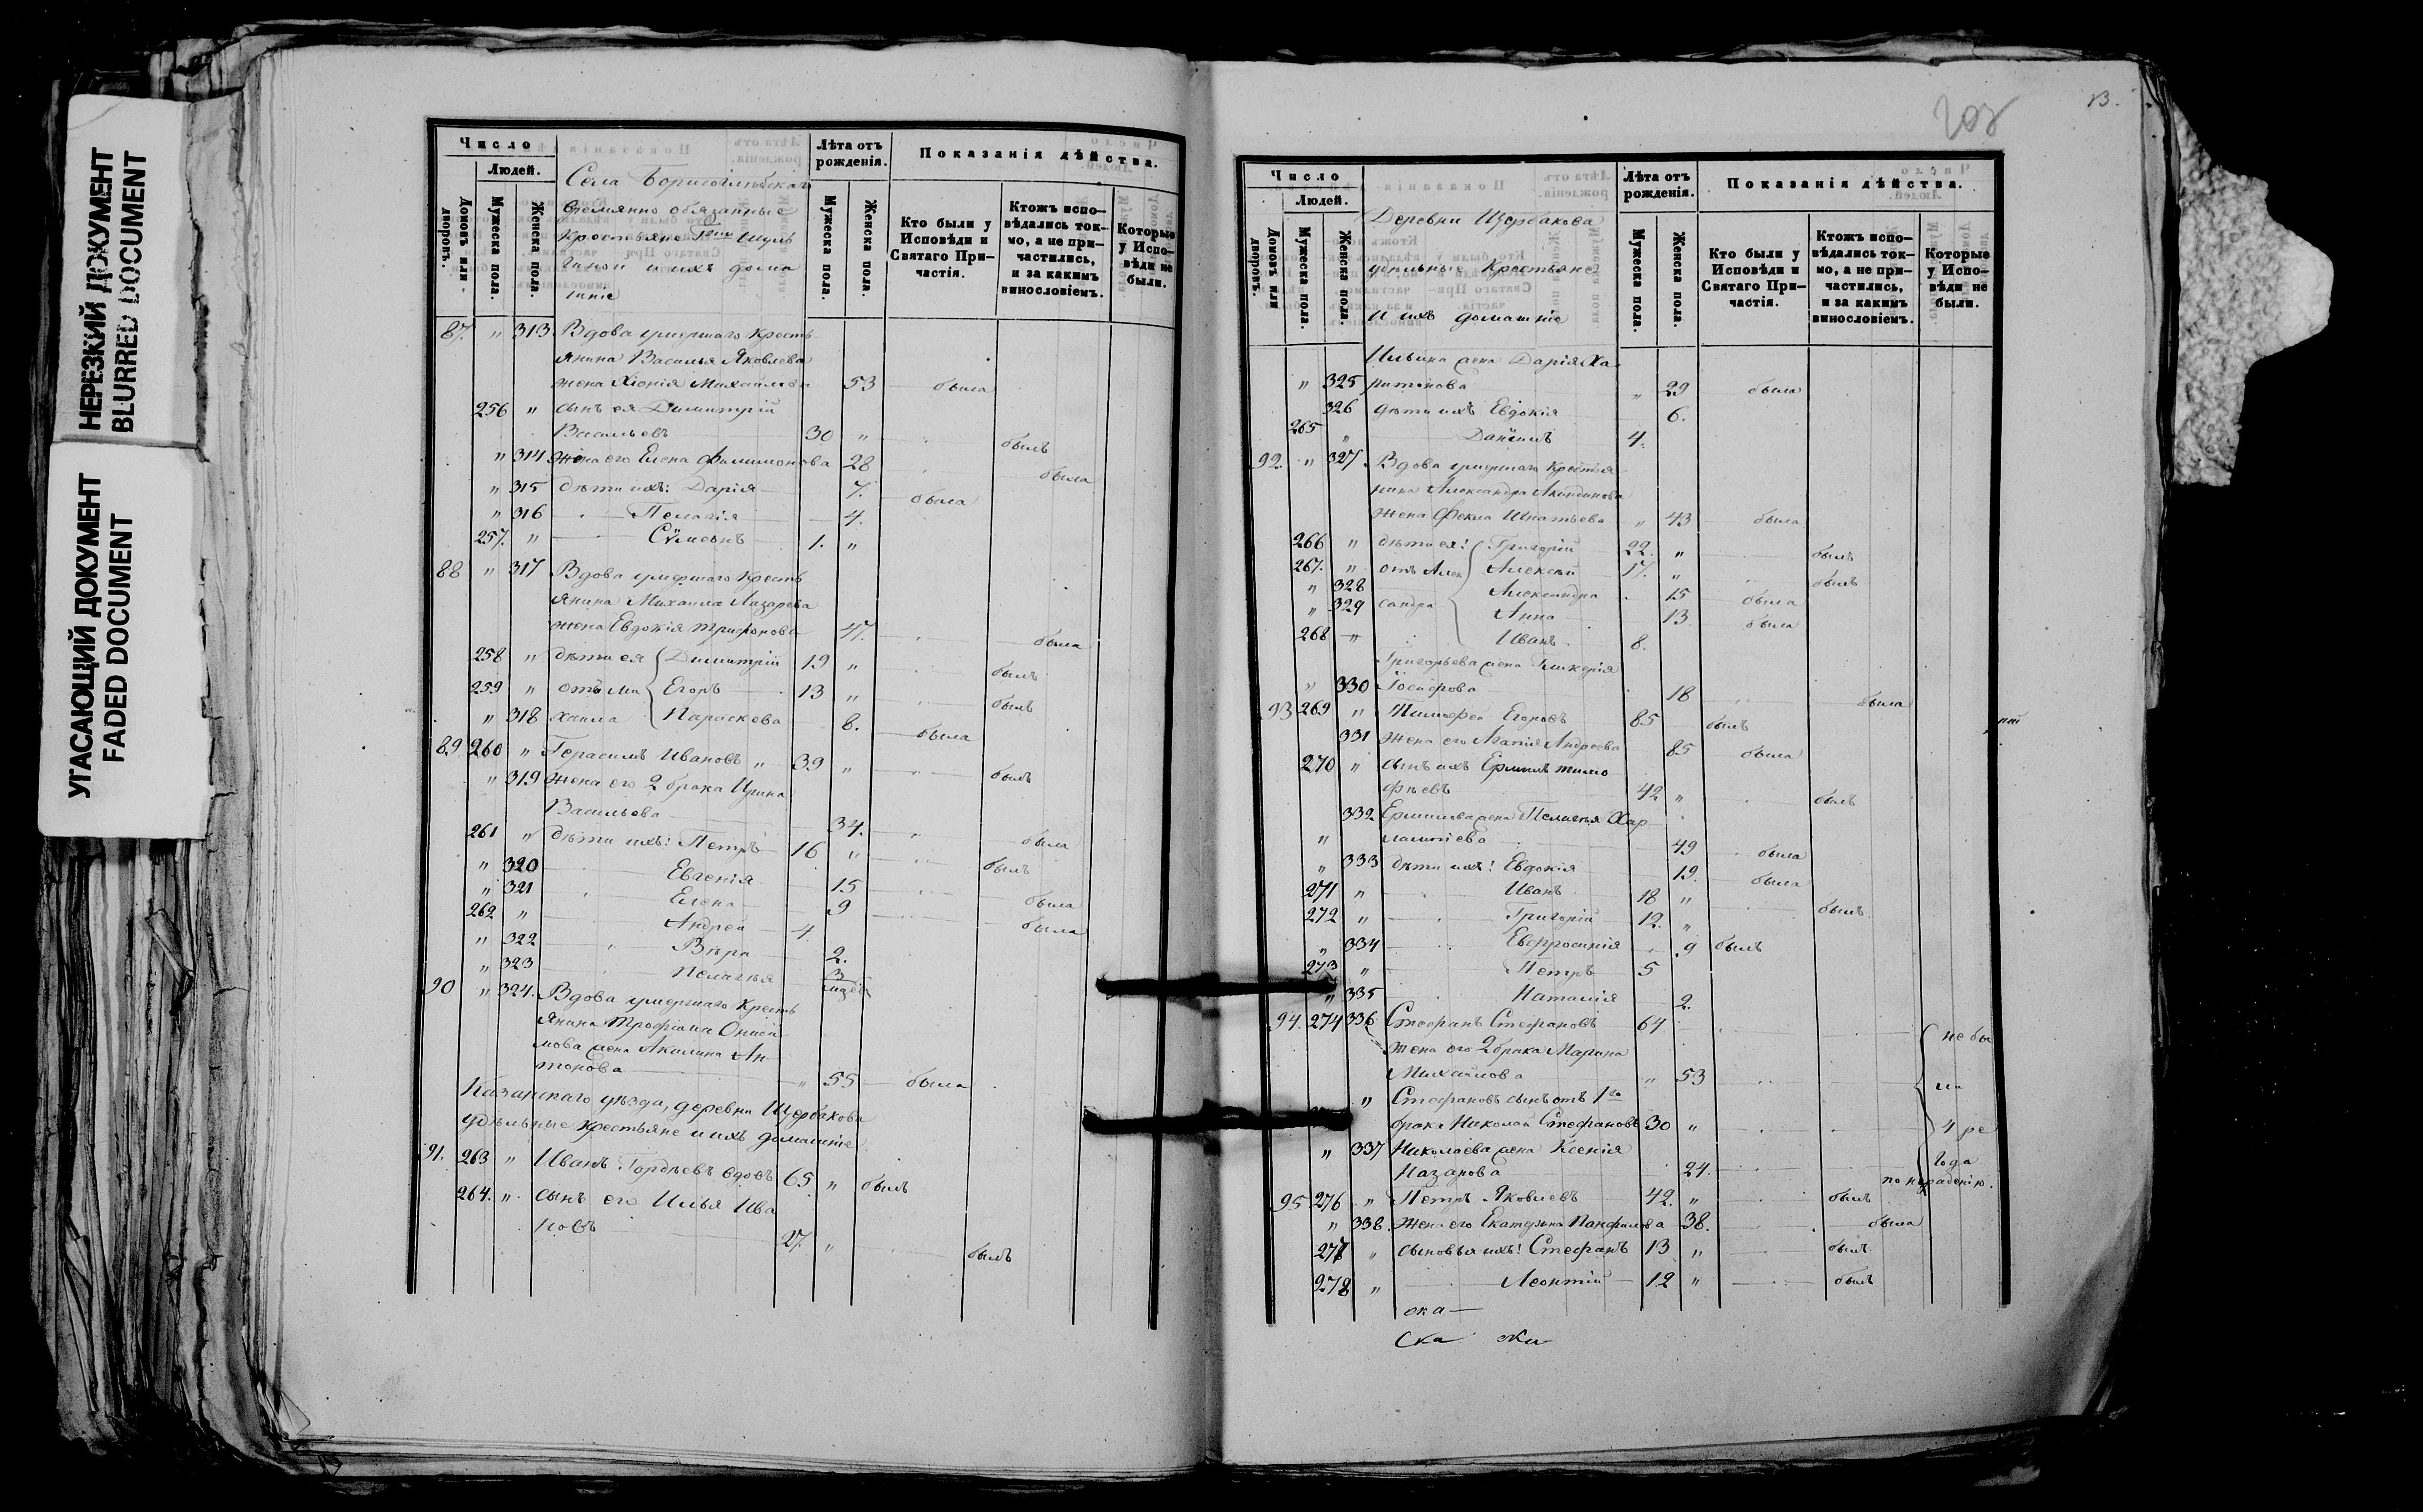 НЕРЕЗКИЙ ДОКУМЕНТ
BLURRED DOCUMENT
УГАСАЮЩИЙ ДОКУМЕНТ
FADED DOCUMENT
Число
Людей.
Домовъ или дворовъ.
Мужеска пола.
Женска пола.
Села Борисоглѣбскаго
временно обязанные
крестьяне
и ихъ дома
шніе
Лѣта отъ рожденія.
Мужеска пола.
Женска пола.
Показанія дѣйства.
Кто были у Исповѣди и Святаго Причастія.
Ктожъ исповѣдались токмо, а не причастились, и за какимъ винословіемъ.
Которые у Исповѣди не были.
87. " 313 Вдова умершаго кресть
янина Василья Яковлева
жена Хіонія Михайлова 53 была
256 " сынъ ея Димитрій
Васильевъ 30 " былъ
" 314 жена его Елена Филимонова 28 была
" 315 дѣти ихъ: Дарія 7. была
" 316 Пелагія 4.
257. " Сѵмеонъ 1. "
88 " 317 Вдова умершаго кресть
янина Михаила Лазарева
жена Евдокія Трифонова 47. была
258 " дѣти ея Димитрій 19 " былъ
259 " отъ Ми Егоръ 13 " былъ
" 318 хаила Параскева 8. была
89 260 " Герасимъ Ивановъ " 39 " былъ
" 319 жена его 2 брака Ирина
Васильева 34. была
261 " дѣти ихъ: Петръ 16 " былъ
" 320 Евгенія 15 была
" 321 Елена 9 была
262 " Андрей 4.
" 322 Вѣра 2.
" 323 Пелагья 3
90 " 324. Вдова умершаго кресть
янина Трофима Ониси
мова жена Акилина Ан
тонова " 55 была
Казанскаго уѣзда, деревни Щербакова
удѣльные крестьяне и ихъ домашніе
91. 263 " Иванъ Гордѣевъ вдовъ 65 " былъ
264. " сынъ его Илья Ива
новъ 27. " былъ
13.
Число
Людей.
Домовъ или дворовъ.
Мужеска пола.
Женска пола.
Деревни Щербакова
удѣльные крестьяне
и ихъ домашніе
Лѣта отъ рожденія.
Мужеска пола.
Женска пола.
Показанія дѣйства.
Кто были у Исповѣди и Святаго Причастія.
Ктожъ исповѣдались токмо, а не причастились, и за какимъ винословіемъ.
Которые у Исповѣди не были.
Ильина жена Дарія Ха
" 325 ритонова " 29 была
326 дѣти ихъ Евдокія 6.
265 " Даніилъ 4.
92. " 327. Вдова умершаго крестья
нина Александра Акиндинова
жена Фекла Игнатьева " 43 была
266 " дѣти ея: Григорій 22. " былъ
267. " отъ Алек Алексѣй 17. " былъ
" 328 Александра 15 была
" 329 сандра Анна 13 была
268 " Иванъ 8.
Григорьева жена Гликерія
" 330 Іосифова 18 была
93 269 " Тимофей Егоровъ 85 былъ
331 жена его Агапія Андреева 85 была
270 " сынъ ихъ Ермилъ Тимо
фѣевъ 42 " былъ
332 Ермилова жена Пелагья Хар
" лампіева 49 была
" 333 дѣти ихъ: Евдокія 19. была
271 " Иванъ 18 " былъ
272 " Григорій 12. "
" 334 Евфросинія 9 былъ
273 " Петръ 5
" 335 Наталія 2.
94. 274 336 Стефанъ Стефановъ 64
жена его 2 брака Марина
Михайлова " 53
" Стефановъ сынъ отъ 1го
брака Николай Стефановъ 30 "
" 337 Николаева жена Ксенія
Назарова 24.
не бы
ли
4 ре
года
по нерадению.
95 276 " Петръ Яковлевъ 42. " былъ
" 338. жена его Екатерина Панфилова 38. была
277 " сыновья ихъ: Стефанъ 13 " былъ
278 " Леонтій 12 " былъ